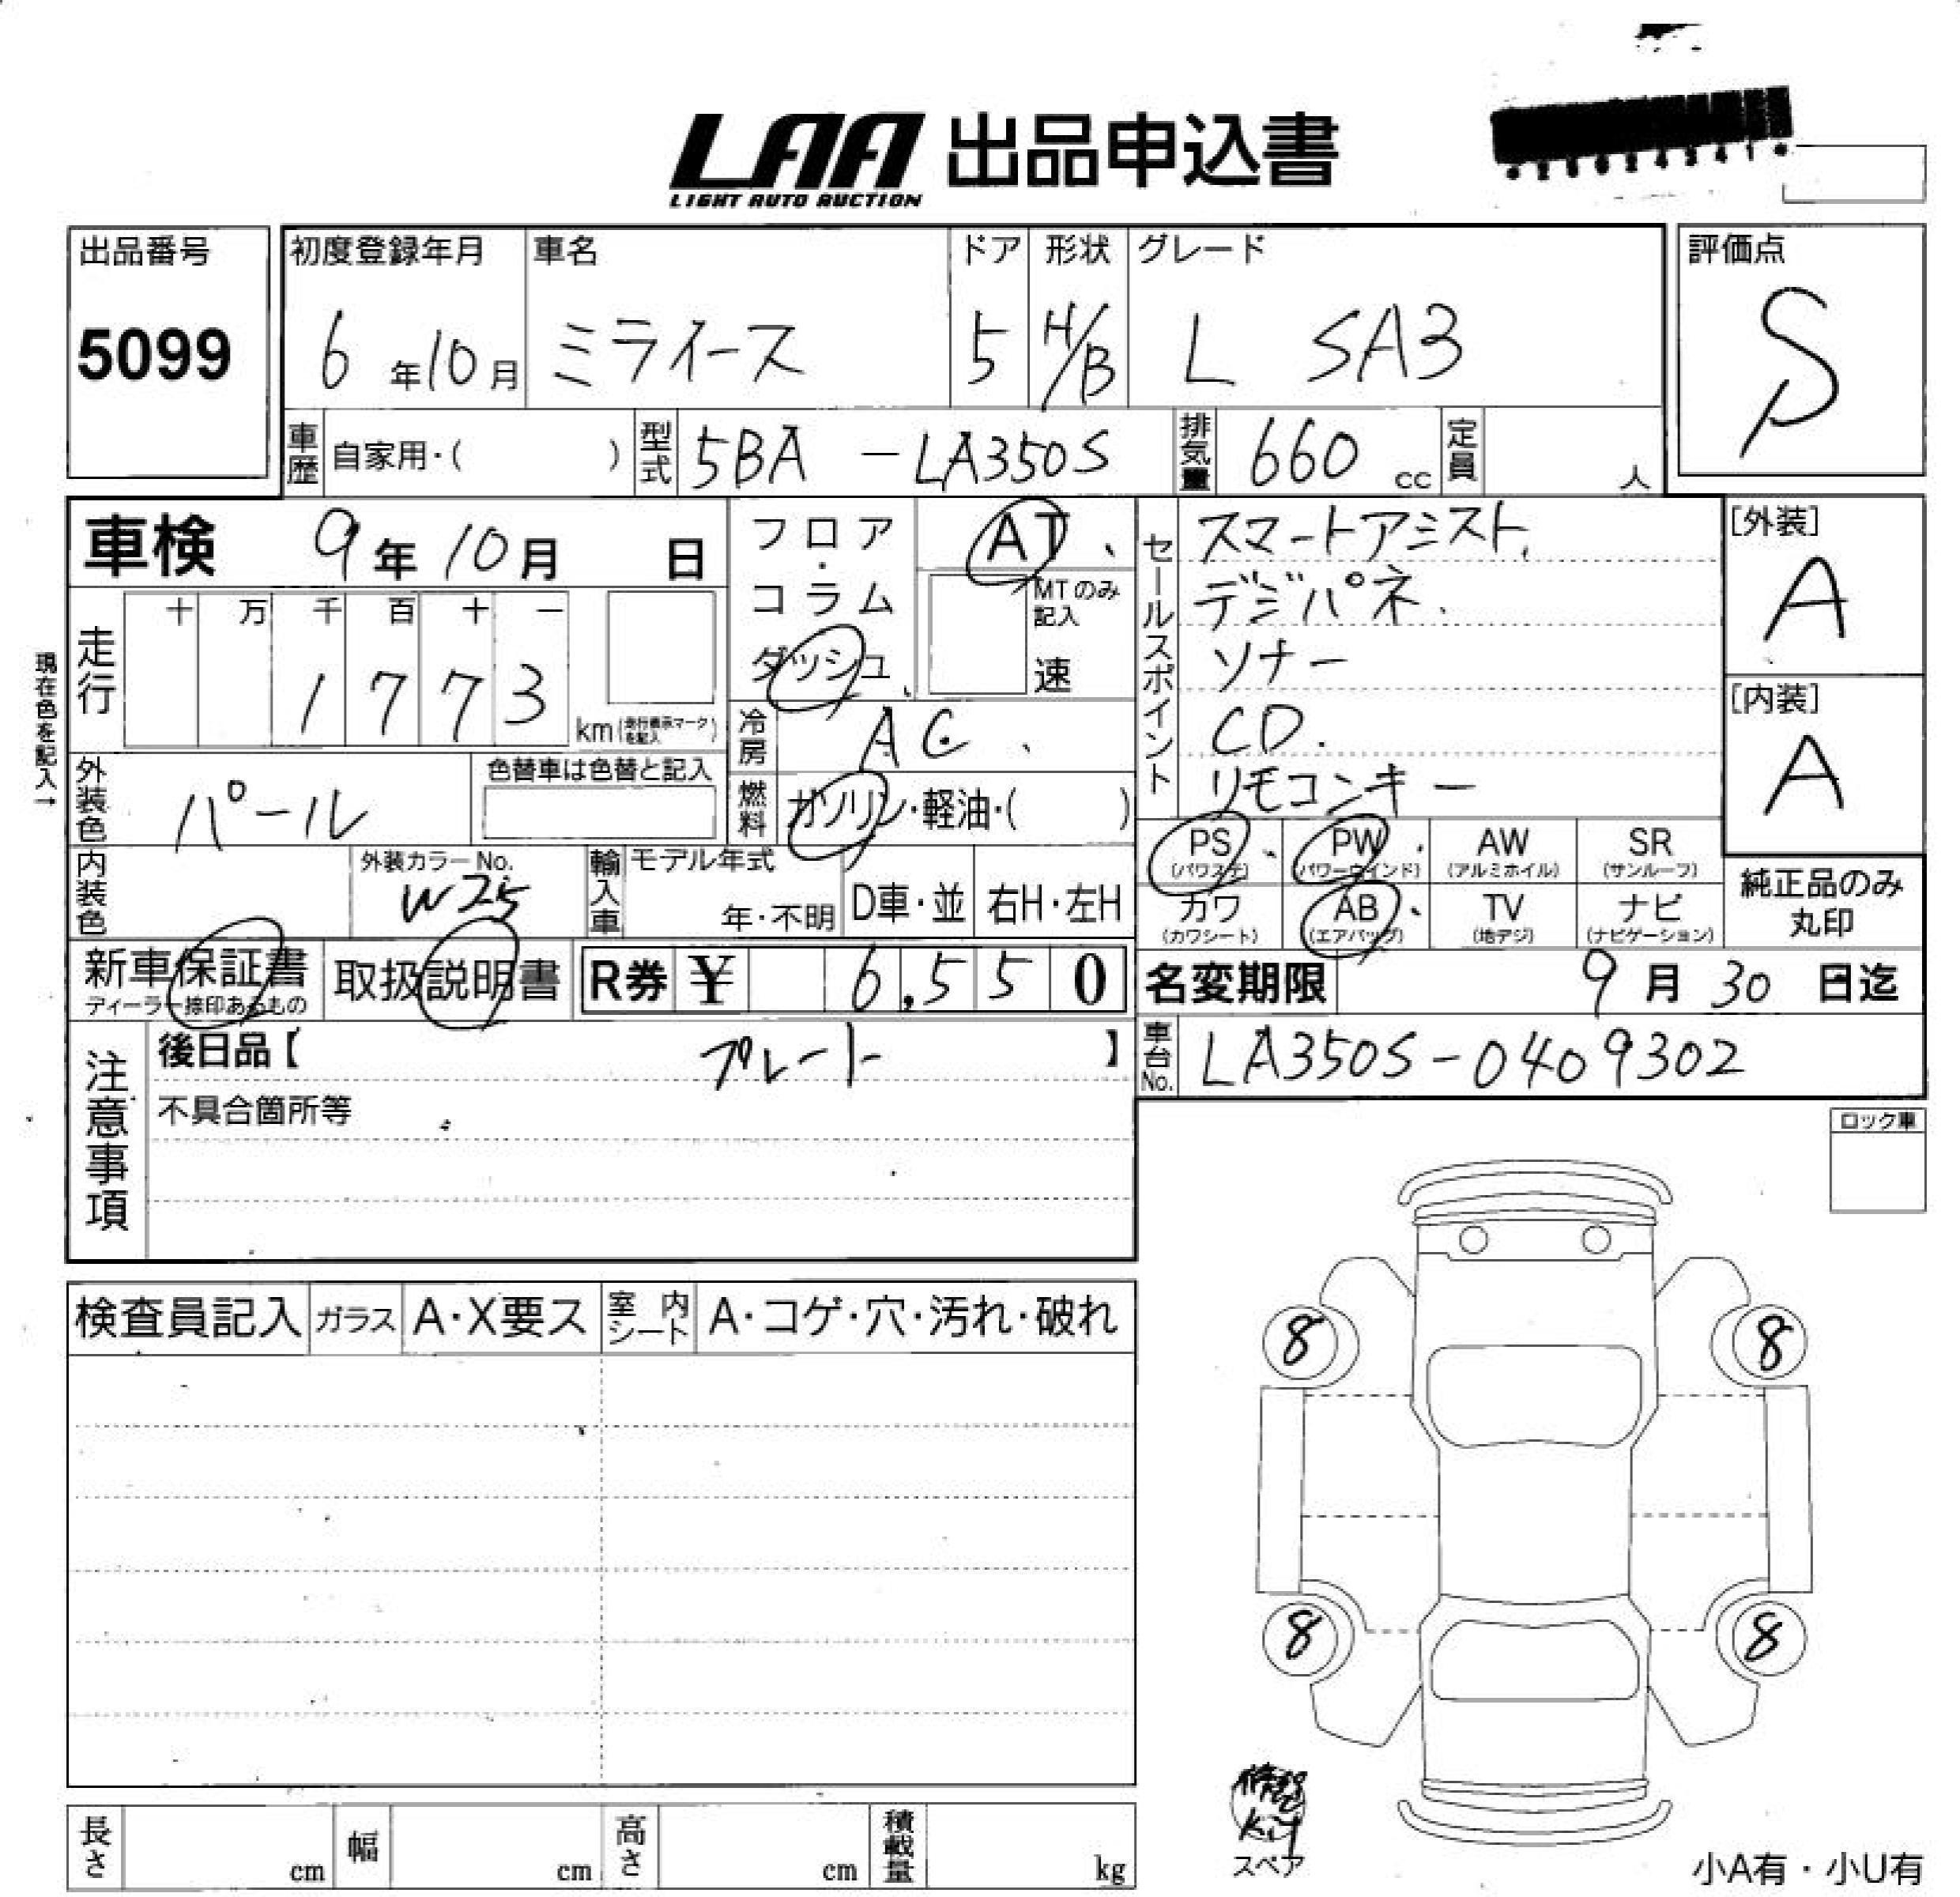 LAA 出品申込書
LIGHT AUTO AUCTION
出品番号
5099
初度登録年月
6年10月
車名
ミライース
ドア
5
形状
H/B
グレード
L SA3
評価点
S
車歴
自家用・( )
型式
5BA-LA350S
排気量
660 cc
定員
人
車検 9年10月 日
走行
十 万 千 百 十 一
1773
km(走行表示マークを記入)
現在色を記入→
フロア・コラム
ダッシュ
AT
MTのみ記入
速
冷房
AC
燃料
ガソリン・軽油・( )
セールスポイント
スマートアシスト
デジパネ
ソナー
CD
リモコンキー
[外装]
A
[内装]
A
外装色
パール
色替車は色替と記入
内装色
外装カラーNo.
W25
輸入車
モデル年式
年・不明
D車・並
右H・左H
PS
(パワステ)
PW
(パワーウインド)
AW
(アルミホイル)
SR
(サンルーフ)
カワ
(カワシート)
AB
(エアバッグ)
TV
(地デジ)
ナビ
(ナビゲーション)
純正品のみ
丸印
新車保証書
ディーラー捺印あるもの
取扱説明書
R券 ¥ 6,550
名変期限 9月30日迄
注意事項
後日品【 プレート 】
不具合箇所等
車台No.
LA350S-0409302
ロック車
検査員記入
ガラス
A・X要ス
室内シート
A・コゲ・穴・汚れ・破れ
8
8
8
8
修理
Kit
スペア
長さ cm
幅 cm
高さ cm
積載量 kg
小A有・小U有